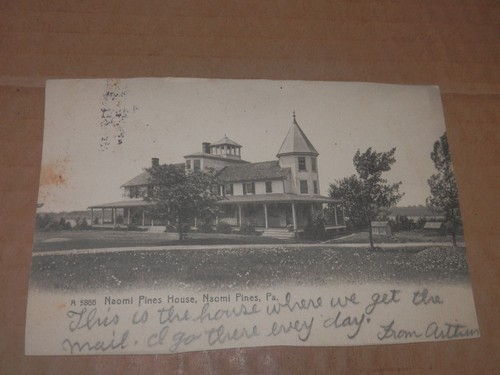 A 5868 Naomi Pines House, Naomi Pines, Pa.
This is the house where we get the
mail. I go there every day.
From Arthur